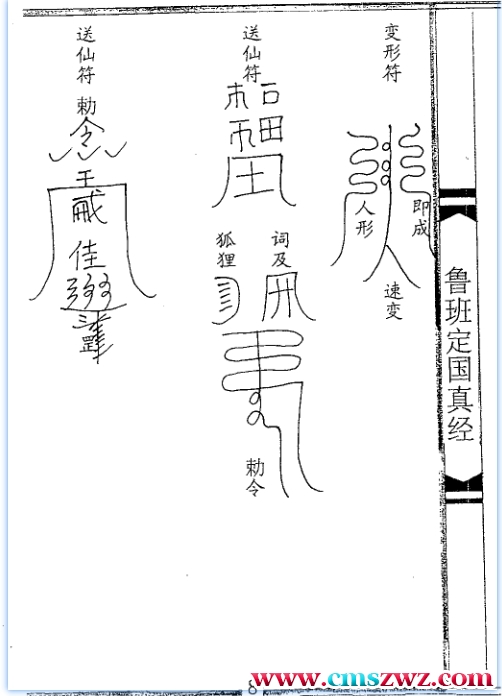 鲁班定国真经
变形符
即成
人形
速变
送仙符
词及
狐狸
勅令
送仙符
勅令
王
佳
8
www.cmszwz.com